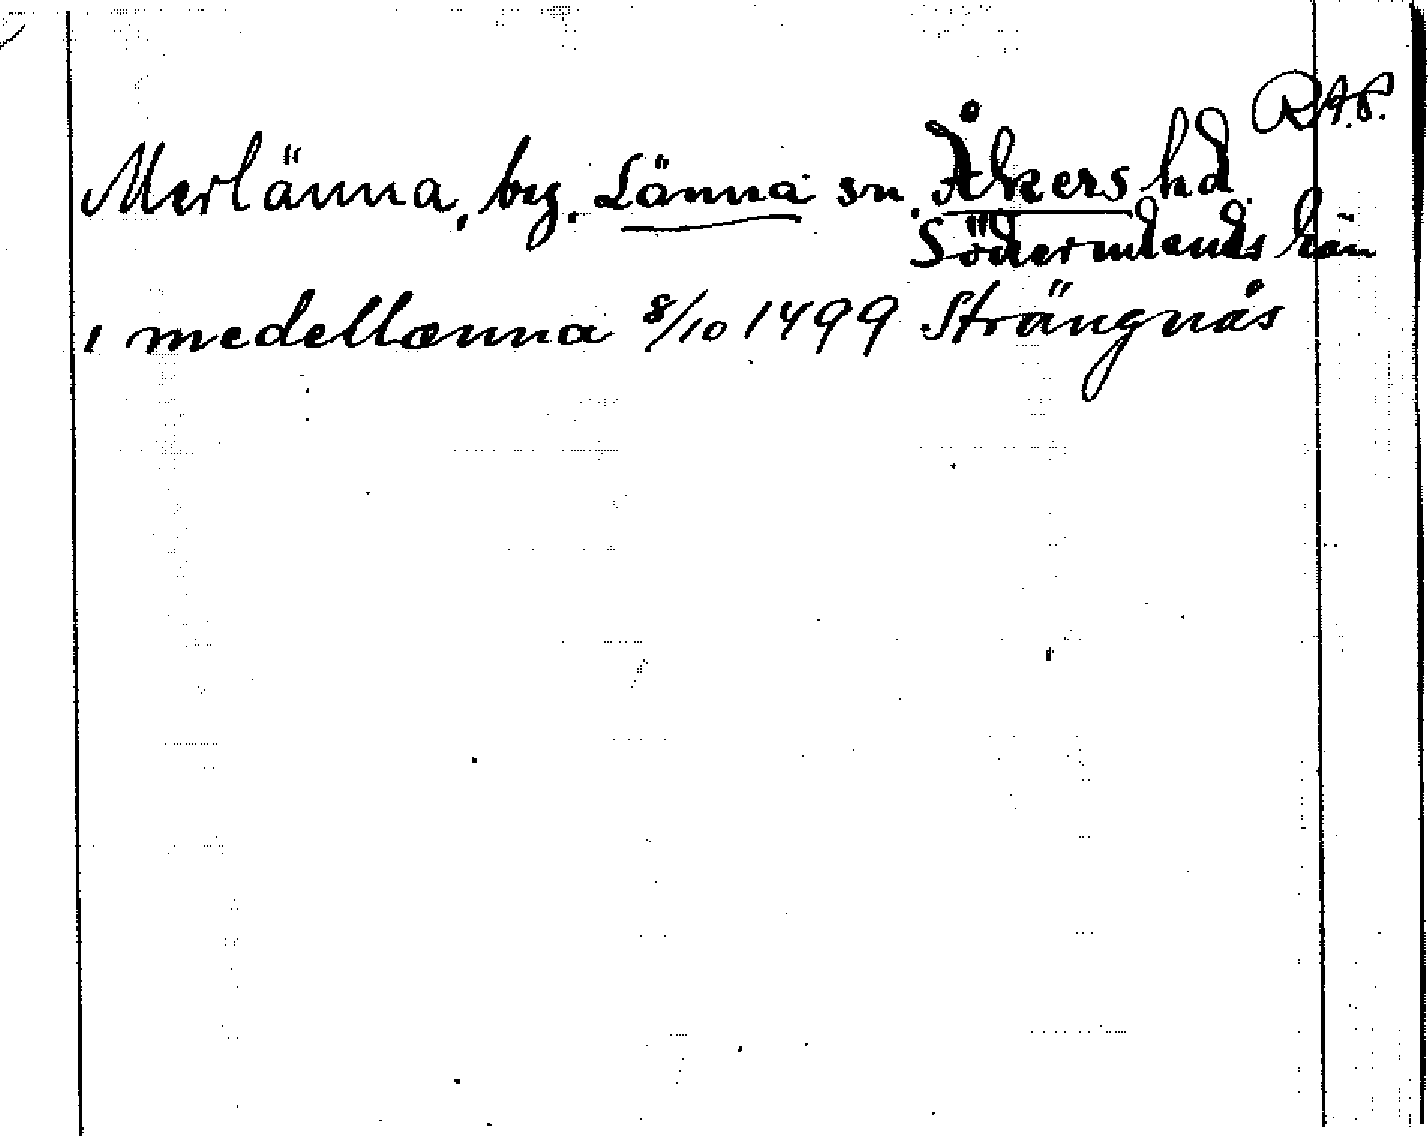 R.A.P.
Merlänna, by. Länna sn. Åkers hd.
Södermlands län
i medellænna 8/10 1499 Strängnäs